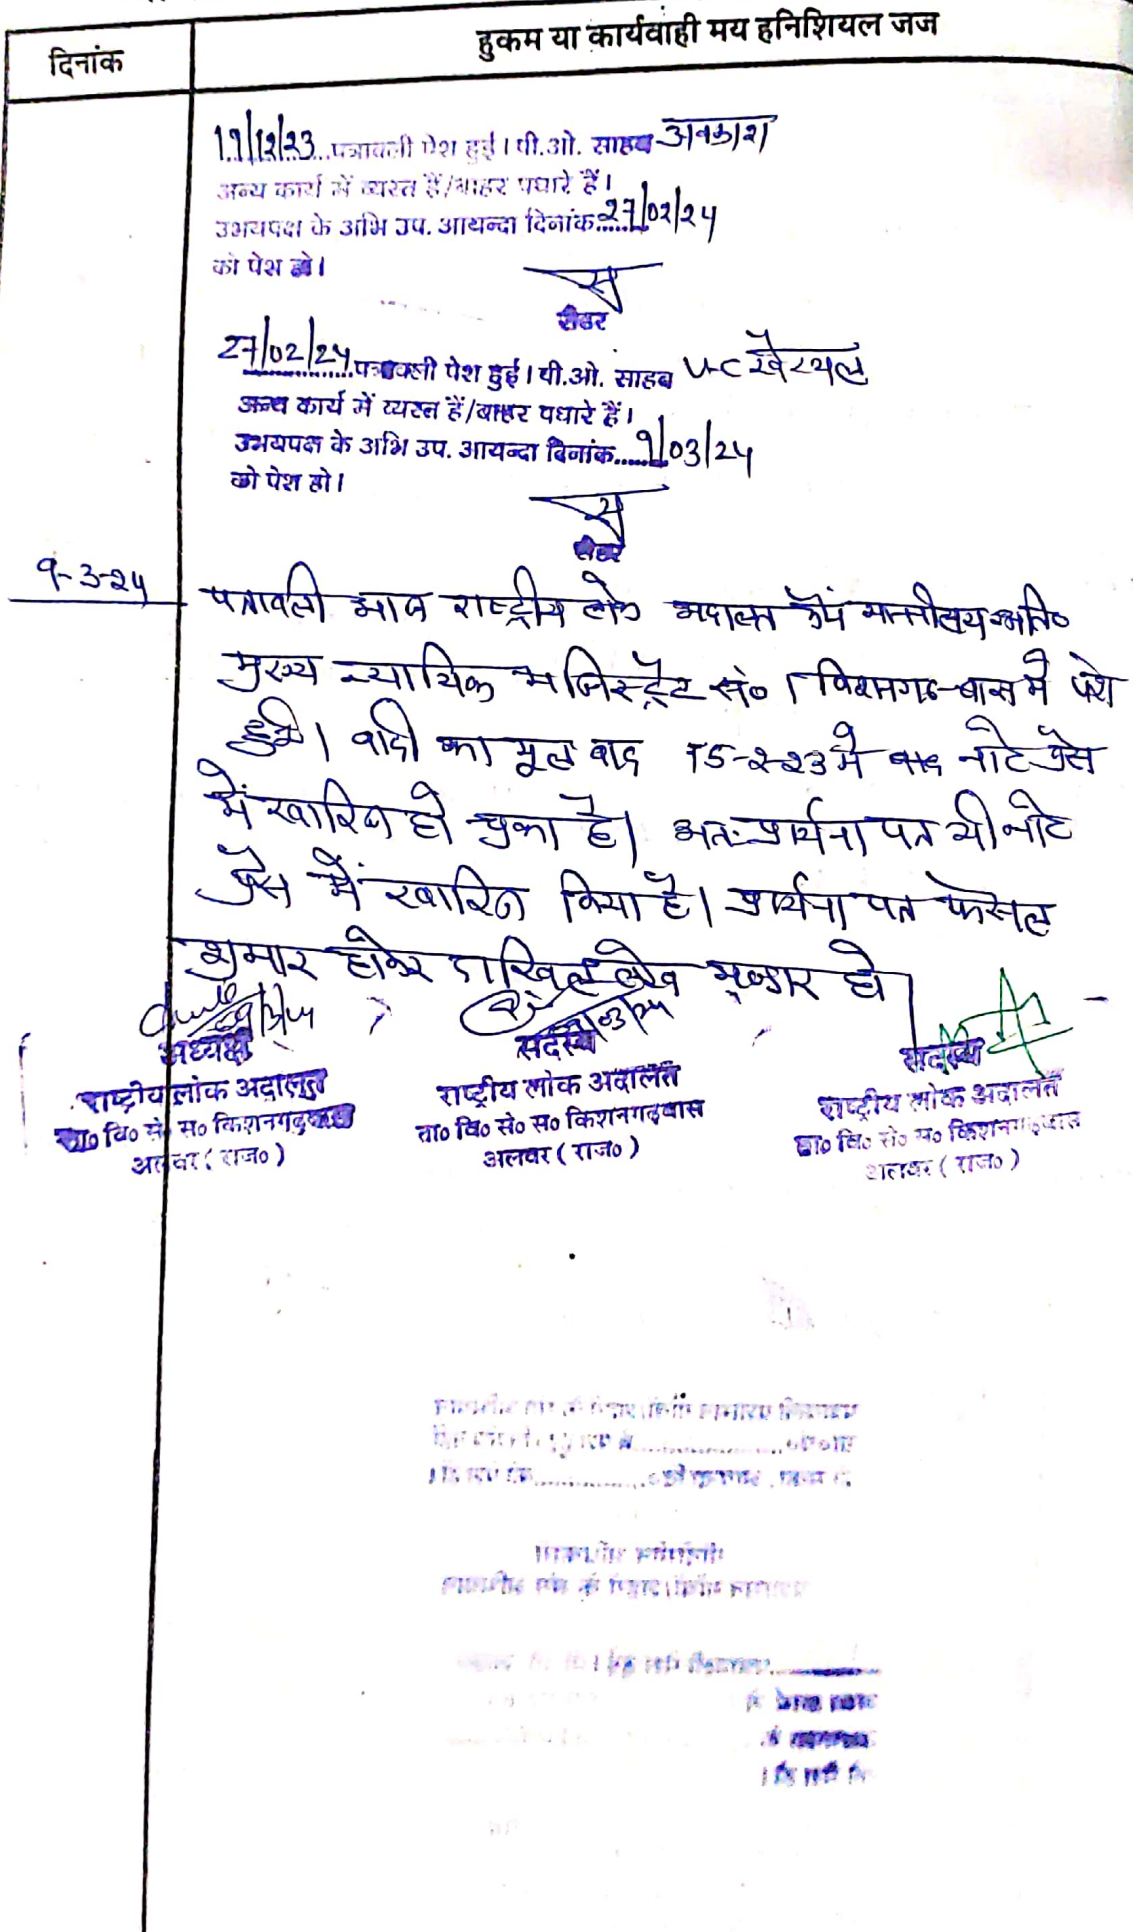 दिनांक
हुकम या कार्यवाही मय हनिशियल जज
11/12/23 पत्रावली पेश हुई। पी.ओ. साहब अवकाश
अन्य कार्य में व्यस्त हैं/बाहर पधारे हैं।
उभयपक्ष के अभि उप. आयन्दा दिनांक......27/02/24
को पेश हो।
रीडर
27/02/24 पत्रावली पेश हुई। पी.ओ. साहब V-C खैरथल
अन्य कार्य में व्यस्त हैं/बाहर पधारे हैं।
उभयपक्ष के अभि उप. आयन्दा दिनांक......9/03/24
को पेश हो।
रीडर
9-3-24
पत्रावली आज राष्ट्रीय लोक अदालत में अति०
मुख्य न्यायिक मजिस्ट्रेट सं० 1 किशनगढ-बास में पेश
हुई। वादी का मूल वाद 15-2-23 में नोट प्रेस
में खारिज हो चुका है। अतः प्रार्थना पत्र भी नोट
प्रेस में खारिज किया है। प्रार्थना पत्र फैसल
शुमार होकर दाखिल हो।
अध्यक्ष
राष्ट्रीय लोक अदालत
ता० वि० से० स० किशनगढ़बास
अलवर ( राज० )
सदस्य
राष्ट्रीय लोक अदालत
ता० वि० से० स० किशनगढ़बास
अलवर ( राज० )
सदस्य
राष्ट्रीय लोक अदालत
ता० वि० से० स० किशनगढ़बास
अलवर ( राज० )